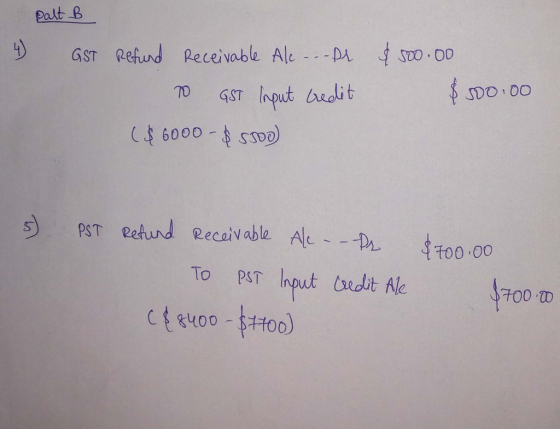 Part B
4) GST Refund Receivable A/c ---Dr $ 500.00
TO GST Input Credit $ 500.00
($ 6000 - $ 5500)
5) PST Refund Receivable A/c - - -Dr $700.00
TO PST Input Credit A/c $700.00
($ 8400 - $7700)